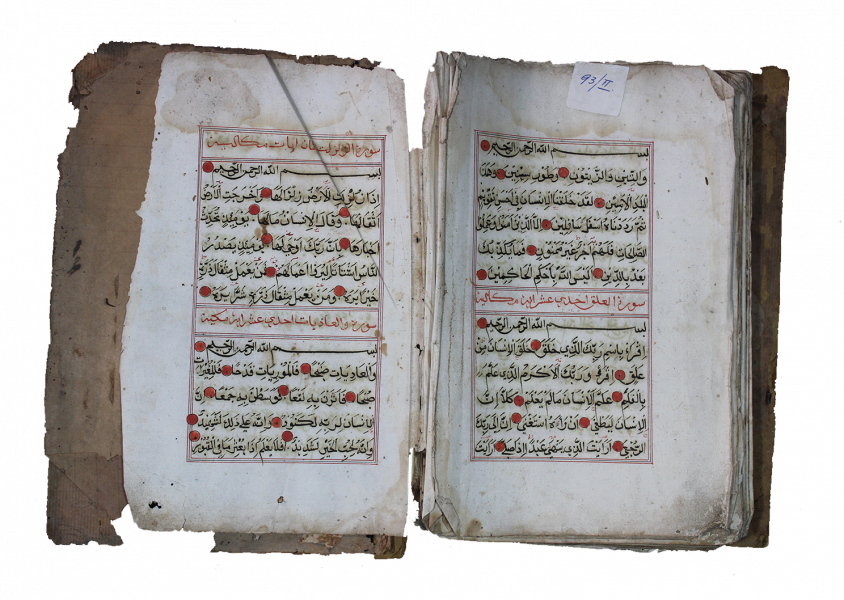 93/II
بسم الله الرحمن الرحيم
والتين والزيتون وطور سينين وهذا
البلد الأمين لقد خلقنا الإنسان في احسن تقويم
ثم رددناه اسفل سافلين الا الذين امنوا وعملوا
الصالحات فلهم اجر غير ممنون فما يكذبك
بعد بالدين اليس الله باحكم الحاكمين
سورة العلق احدى عشر اية
بسم الله الرحمن الرحيم
اقرأ باسم ربك الذي خلق خلق الإنسان من
علق اقرأ وربك الأكرم الذي علم
بالقلم علم الإنسان مالم يعلم كلا ان
الإنسان ليطغى ان راه استغنى ان الى ربك
الرجعى ارايت الذي ينهى عبدا اذا صلى ارايت
سورة ايات
بسم الله الرحمن الرحيم
اذا زلزلت الأرض زلزالها واخرجت الأرض
اثقالها وقال الإنسان مالها يومئذ تحدث
اخبارها بان ربك اوحى لها يومئذ يصدر
الناس اشتاتا ليروا اعمالهم فمن يعمل مثقال ذرة
خيرا يره ومن يعمل مثقال ذرة شرا يره
سورة والعاديات احدى عشر اية مكية
بسم الله الرحمن الرحيم
والعاديات ضبحا فالموريات قدحا فالمغيرات
صبحا فاثرن به نقعا فوسطن به جمعا ان
الإنسان لربه لكنود وانه على ذلك لشهيد
وانه لحب الخير لشديد افلا يعلم اذا بعثر ما في القبور